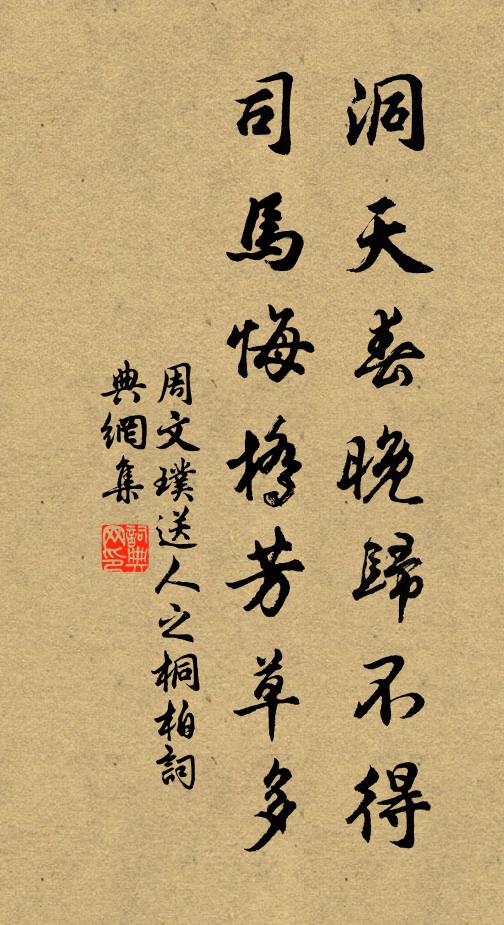 洞天春晚歸不得
司馬悔橋芳草多
周文璞送人之桐柏詞
典網集
詞典網印